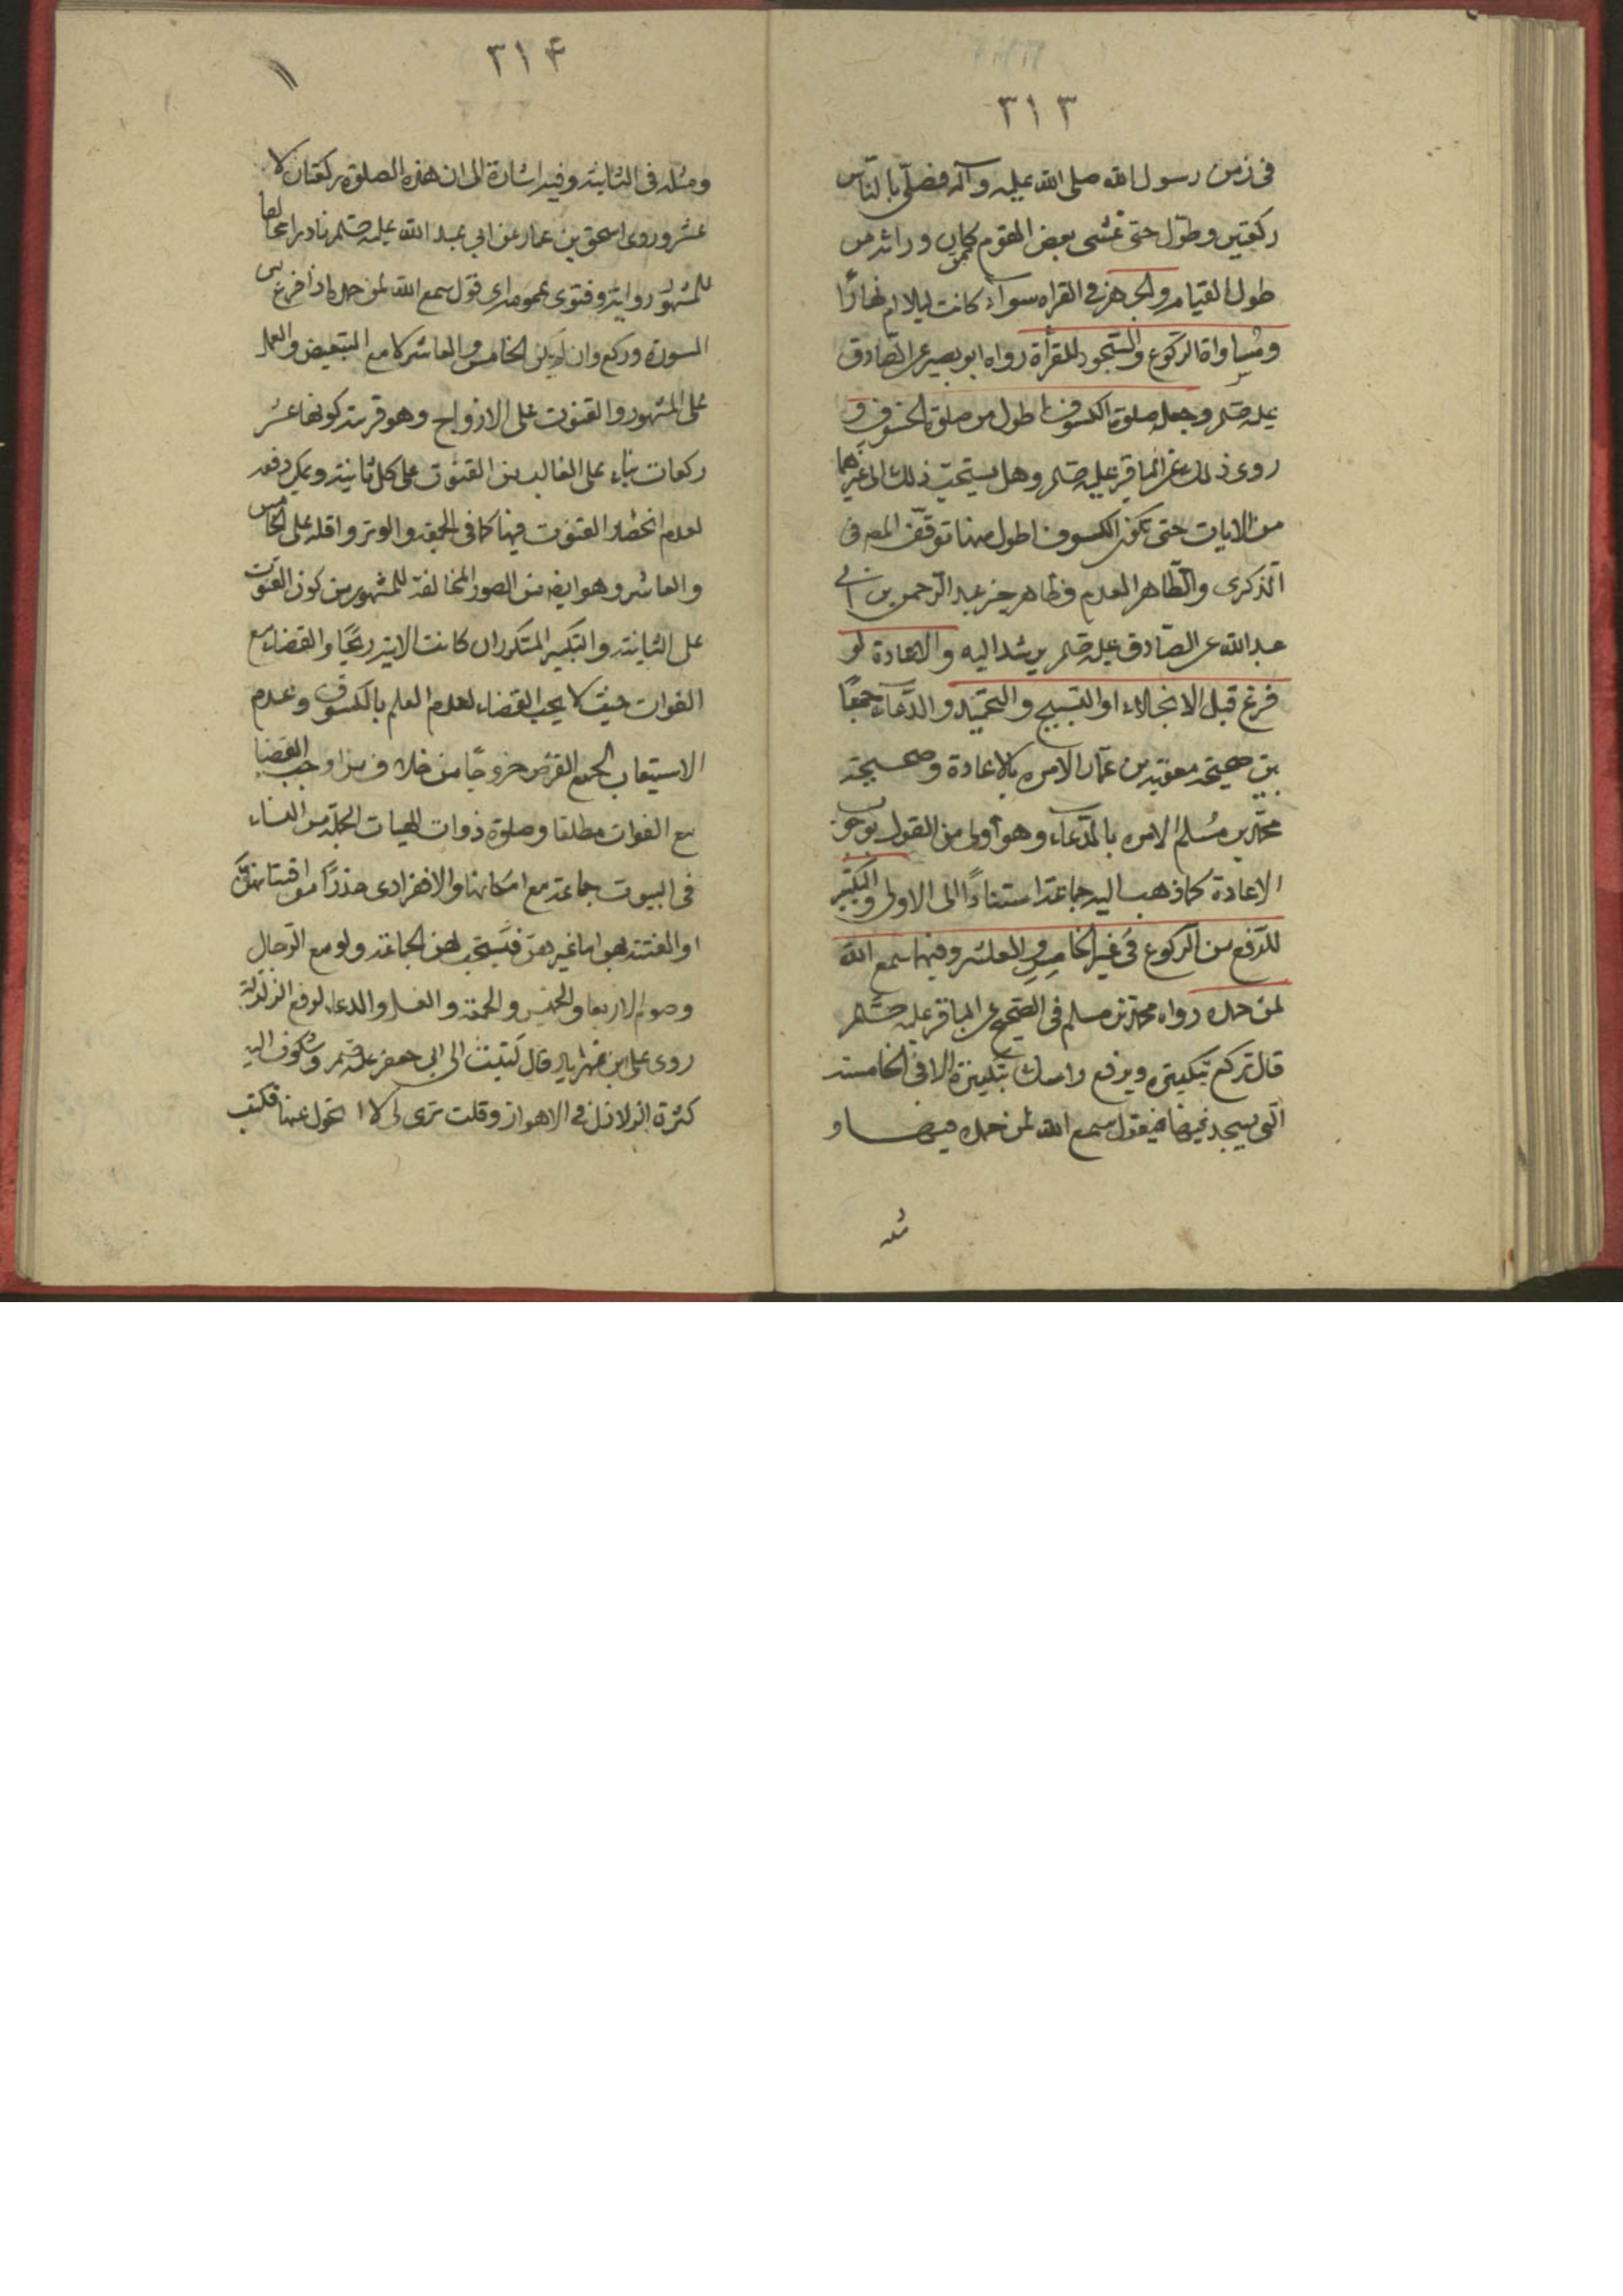 ٣١٣
فى زمن رسول الله صلى الله عليه وآله فصلّى بالنّاس
ركعتين وطوّل حتى غشى بعض القوم ممن كان ورائه من
طول القيام والجهر فى القراه سوآء كانت ليلا ام نهارًا
ومساواة الركوع والسّجود للقرأة رواه ابو بصير عن الصّادق
عليه صلم وجعل صلوة الكسوف اطول من صلوة الخسوف و
روى ذلك عن الباقر عليه صلم وهل يستحبّ ذلك الى غيرهما
من الايات حتى تكون الكسوف اطول منها توقّف المص فى
الذكرى والظاهر العدم وظاهر خبر عبد الرّحمن بن ابى
عبد الله عن الصّادق عليه صلم يرشد اليه والاعادة لو
فرغ قبل الانجلاء او التسبيح والتحميد والدّعاء جمعًا
بين صحيحة معوية بن عمّار الآمره بالاعادة وصحيحة
محمّد بن مسلم الامره بالدّعاء وهو أولى من القول بوجوب
الاعادة كما ذهب اليه جماعة استنادًا الى الاولى والتكبير
للرّفع من الرّكوع فى غير الخامس والعاشر وفيهما سمع الله
لمن حمده رواه محمّد بن مسلم فى الصّحيح عن الباقر عليه صلم
قال تركع بتكبيره ويرفع راسك بتكبيرة الا فى الخامسة
الّتى يسجد فيها فيقول سمع الله لمن حمده فيها و
مثله
٣١۴
ومثله فى الثانية وفيه اشارة الى ان هذه الصلوة ركعتان لا
عشر وروى اسحق بن عمار عن ابي عبد الله عليه صلم نادرا مخالفا
للمشهور رواية وفتوى عمومه اى قول سمع الله لمن حمده اذا فرغ من
السورة وركع وان لم يكن الخامس والعاشر كلا مع التبعيض والعمل
على المشهور والقنوت على الازواج وهو قرينة كونها عشر
ركعات بناء على الغالب من القنوت على كل ثانية ويمكن دفعه
لعدم انحصار القنوت فيها كما فى الجمعة والوتر واقله على الخامس
والعاشر وهو ايضا من الصور المخالفة للمشهور من كون القنوت
على الثانية والتكبير المتكرر ان كانت الاية ريحًا والقضاء مع
الفوات حيث لا يجب القضاء لعدم العلم بالكسوف وعدم
الاستيعاب لجميع القرص خروجًا من خلاف من اوجب القضا
مع الفوات مطلقا وصلوة ذوات الهيات الجميلة من النساء
فى البيوت جماعة مع امكانها والا فرادى حذرًا من افتتانهنّ
او الفتنة بهن اما غيرهن فيستحب لهن الجماعة ولو مع الرّجال
وصوم الاربعا والخميس والجمعة والغسل والدعاء لرفع الزلزلة
روى على ابن مهزيار قال كتبت الى ابى جعفر عليه صلم وشكوت اليه
كثرة الزلازل فى الاهواز وقلت ترى لى لا اتحول عنها فكتب